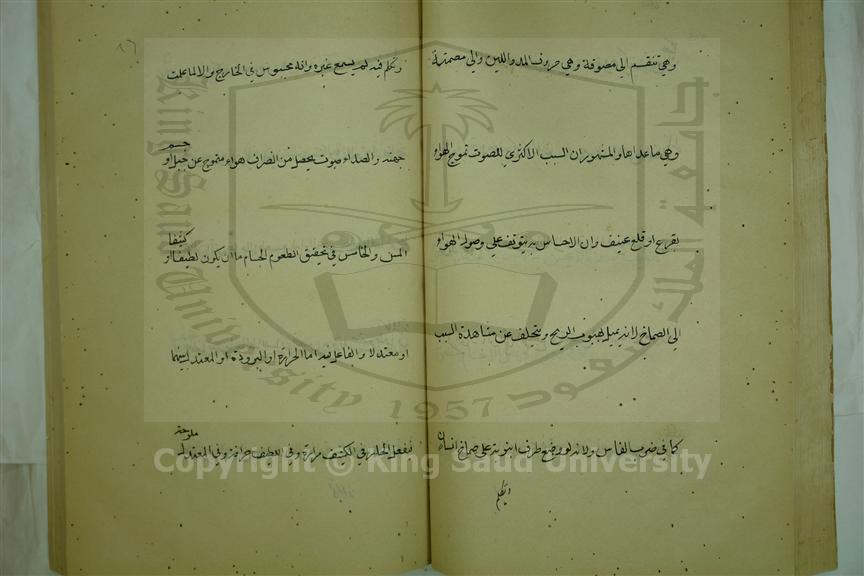 وهي تنقسم الى مصوتة وهي حروف المد واللين والى مصمتة
وهي ماعداها والمشهور ان السبب الاكثري للصوت تموج الهواء
بقرع او قلع عنيف وان الاحساس به يتوقف على وصول الهواء
الى الصماخ لانه يميل لهبوب الريح ويتخلف عن مشاهدة السبب
كما في ضرب الفاس ولانه لو وضع طرف انبوبة على صماخ انسان
وتكلم
٨٦
وتكلم فيه لم يسمع غيره وانه محسوس في الخارج والا لما علمت
جهته والصداء صوت يحصل من انصراف هواء متموج عن جبل او جسم
املس والخامس في تحقيق الطعوم الجسم اما ان يكون لطيفا او كثيفا
او معتدلا والفاعل فيه اما الحرارة او البرودة او المعتدل بينهما
فيفعل الحار في الكثيف مرارة وفي اللطيف حرافة وفي المعتدل ملوحة
King Saud University
جامعة الملك سعود
1957
Copyright © King Saud University